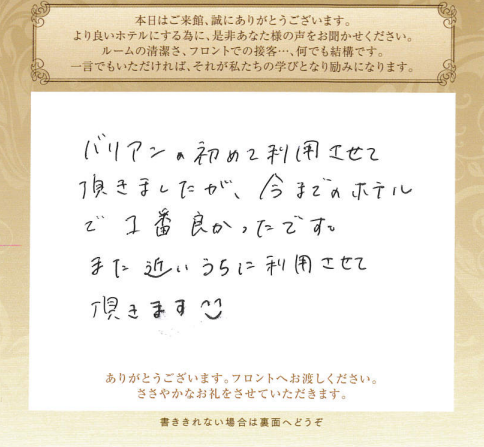 本日はご来館、誠にありがとうございます。
より良いホテルにする為に、是非あなた様の声をお聞かせください。
ルームの清潔さ、フロントでの接客…、何でも結構です。
一言でもいただければ、それが私たちの学びとなり励みになります。
バリアンの初めて利用させて
頂きましたが、今までのホテル
で1番良かったです。
また近いうちに利用させて
頂きます
ありがとうございます。フロントへお渡しください。
ささやかなお礼をさせていただきます。
書ききれない場合は裏面へどうぞ